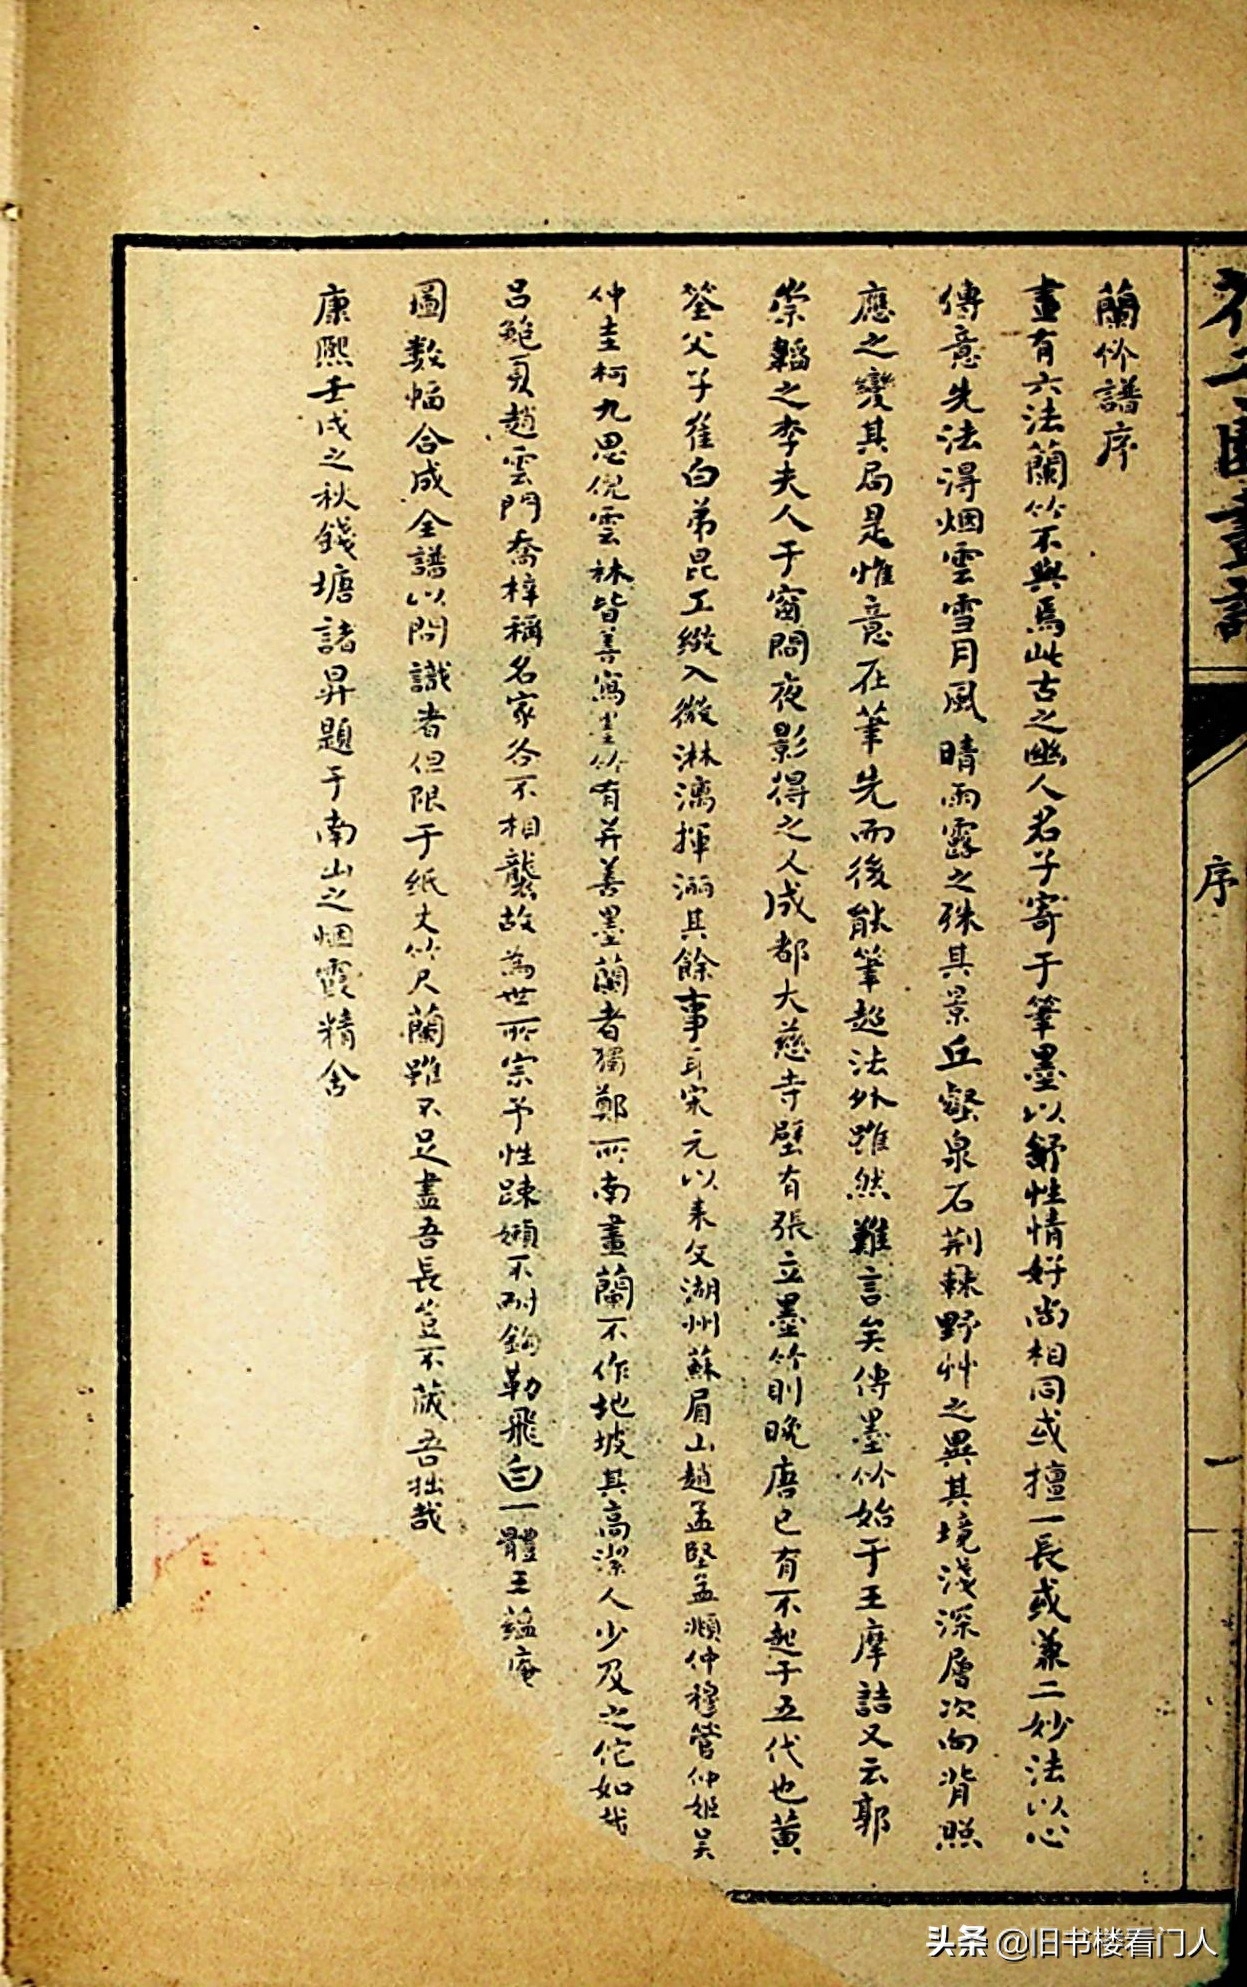 蘭竹譜序
畫有六法蘭竹不與焉此古之幽人君子寄于筆墨以舒性情好尚相同或擅一長或兼二妙法以心
傳意先法得烟雲雪月風晴雨露之殊其景丘壑泉石荆棘野艸之異其境淺深層次向背照
應之變其局是惟意在筆先而後能筆超法外雖然難言矣傳墨竹始于王摩詰又云郭
崇韜之李夫人于窗間夜影得之人成都大慈寺壁有張立墨竹則晚唐已有不起于五代也黄
筌父子崔白弟昆工緻入微淋漓揮洒其餘事耳宋元以来文湖州蘇眉山趙孟堅孟頫仲穆管仲姬吴
仲圭柯九思倪雲林皆善寫墨竹有并善墨蘭者獨鄭所南畫蘭不作地坡其高潔人少及之佗如哉
吕鮑夏趙雲門喬梓稱名家各不相襲故為世所宗予性疎嬾不耐鈎勒飛白一體王蘊庵
圖数幅合成全譜以問識者但限于紙丈竹尺蘭雖不足盡吾長豈不蔵吾拙哉
康熙壬戌之秋錢塘諸昇題于南山之烟霞精舍
園畫
序
一
头条 @旧书楼看门人